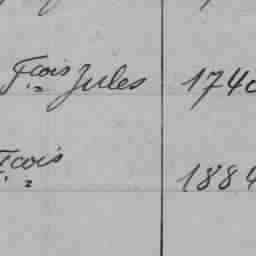 Fçois Jules 1740
Fçois 1884